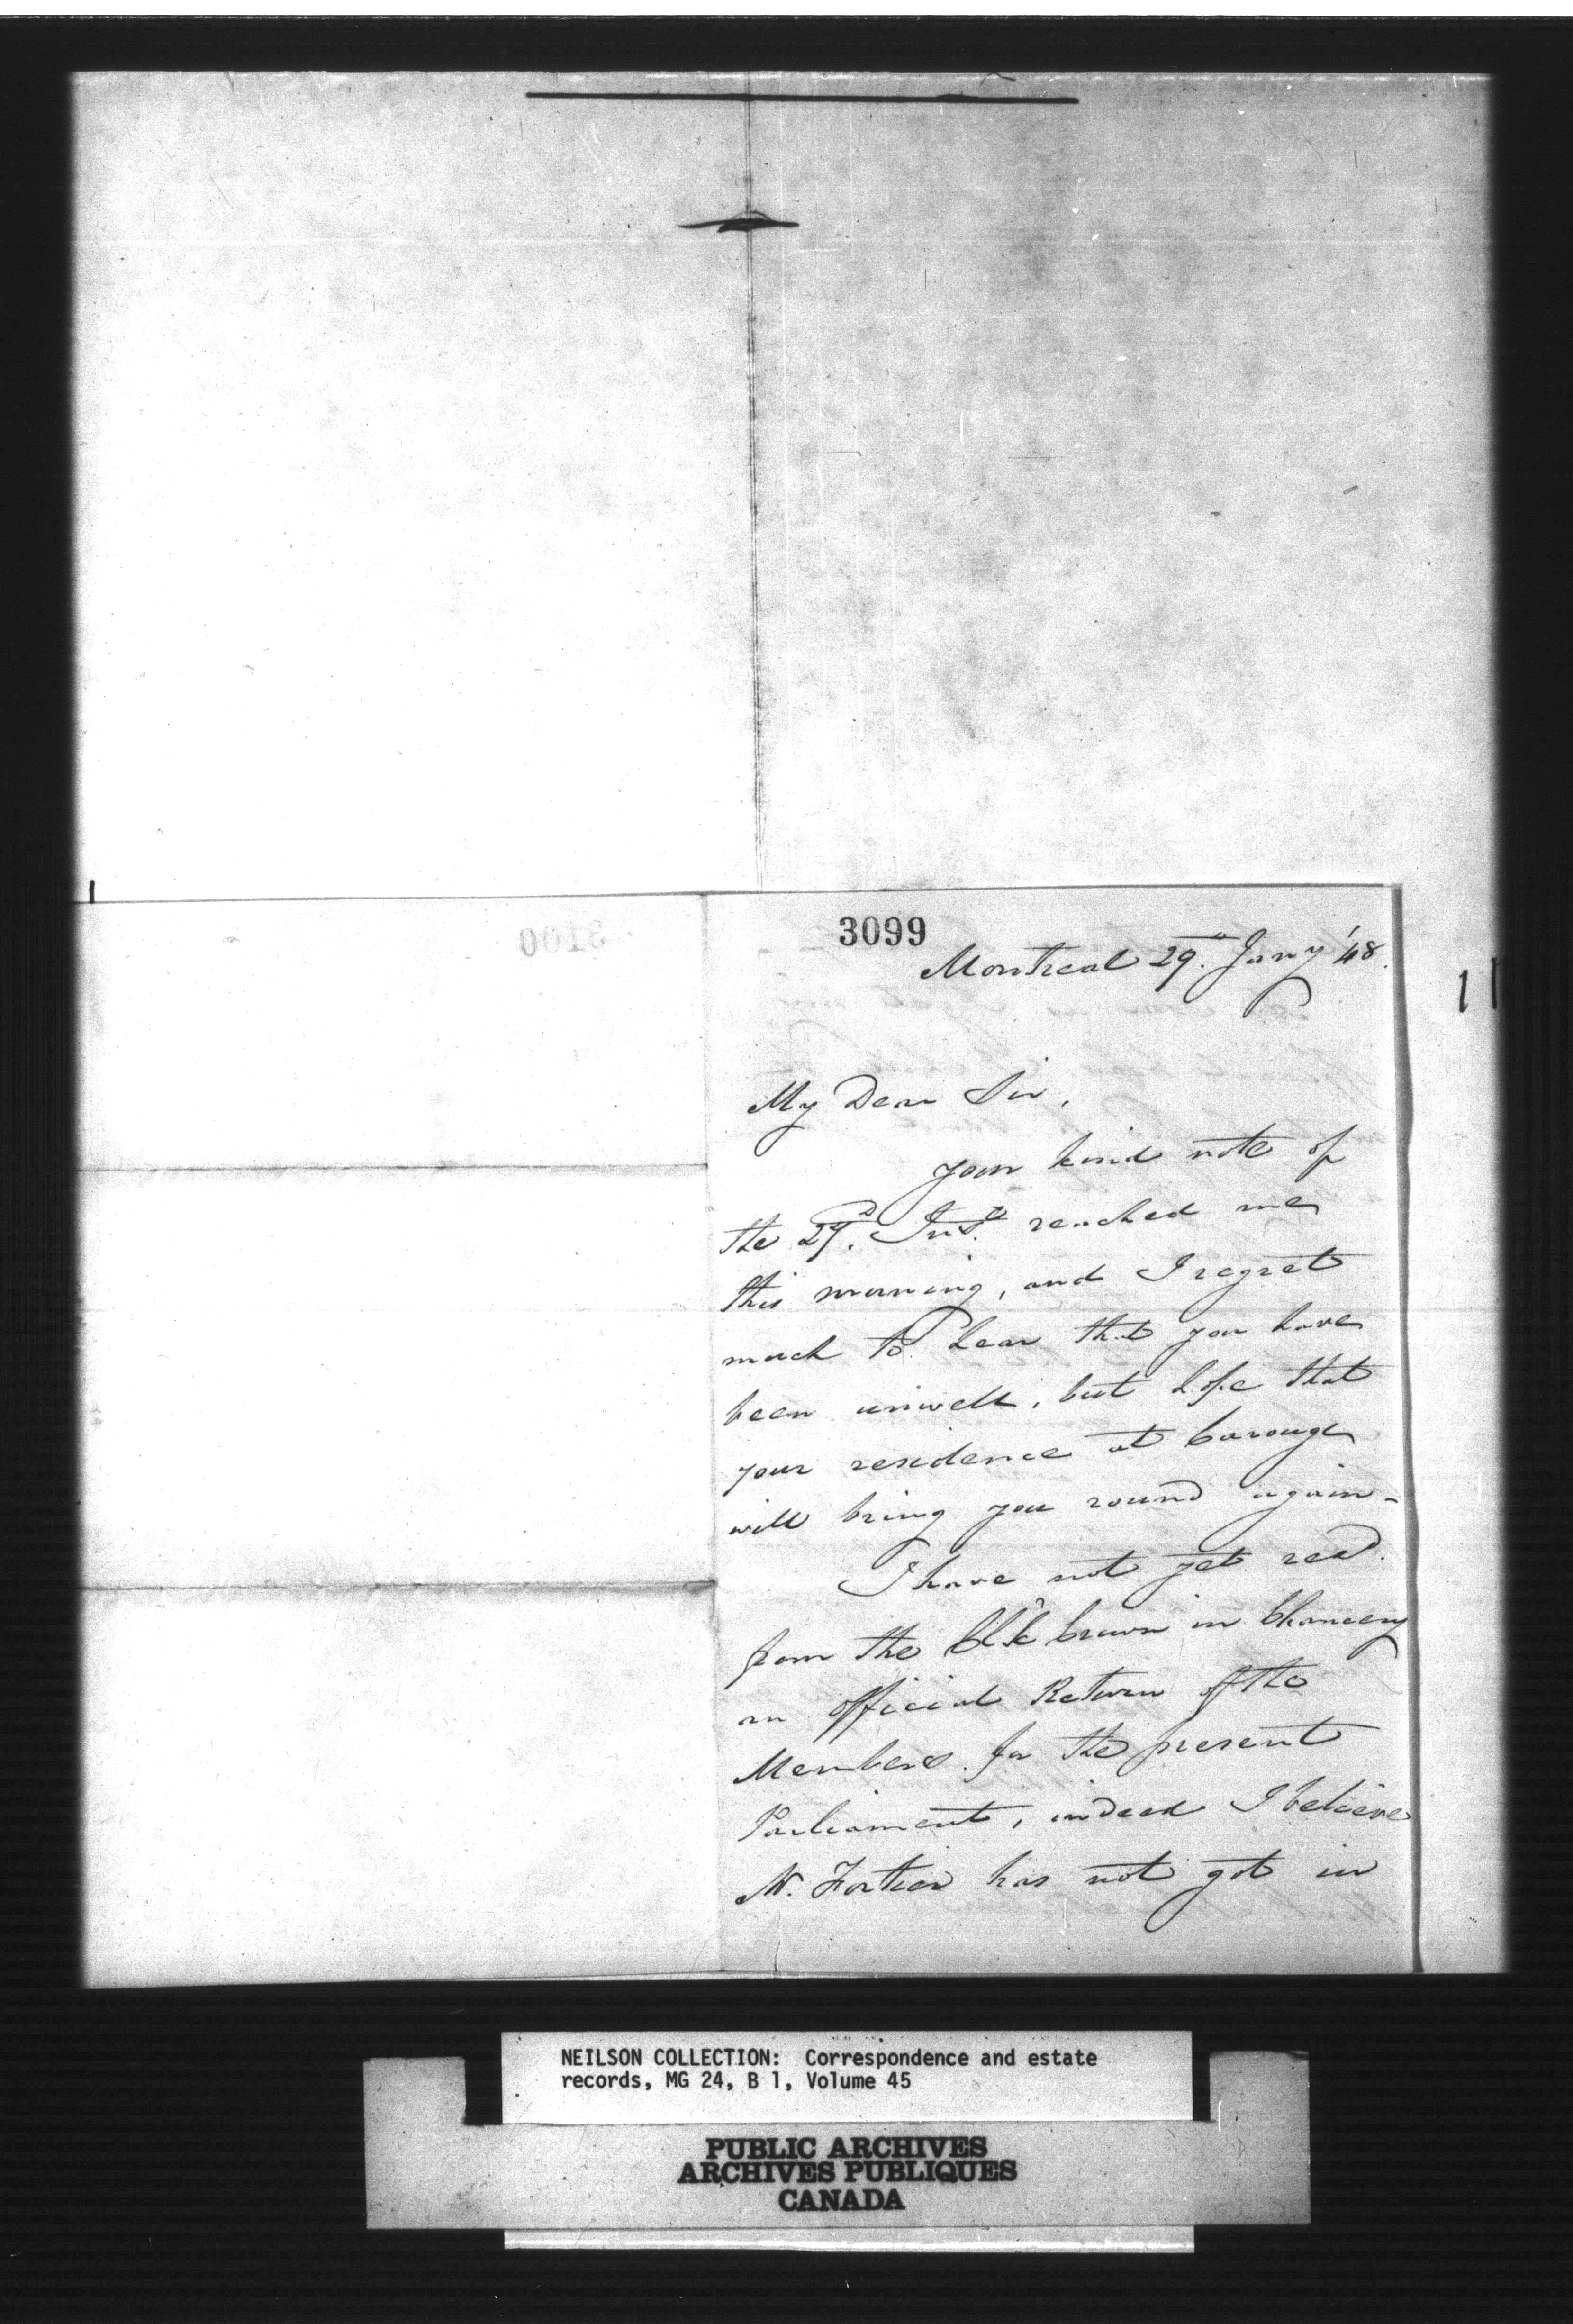 3099
Montreal 29th. Jany '48.
My Dear Sir,
your kind note of
the Inst. reached me
this morning, and I regret
much to hear that you have
been unwell, but hope that
your residence at Carouge
will bring you round again-
I have not yet recd.
from the Clk Crown in Chancery
an official Return of the
Members for the present
Parliament, indeed I believe
M. Fortier has not got in
3100
NEILSON COLLECTION: Correspondence and estate
records, MG 24, B 1, Volume 45
PUBLIC ARCHIVES
ARCHIVES PUBLIQUES
CANADA